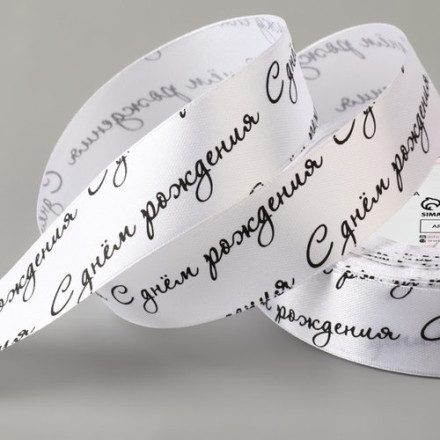 С днём рождения
С днём рождения
С днём рождения
С днём рождения
рождения
SIMA